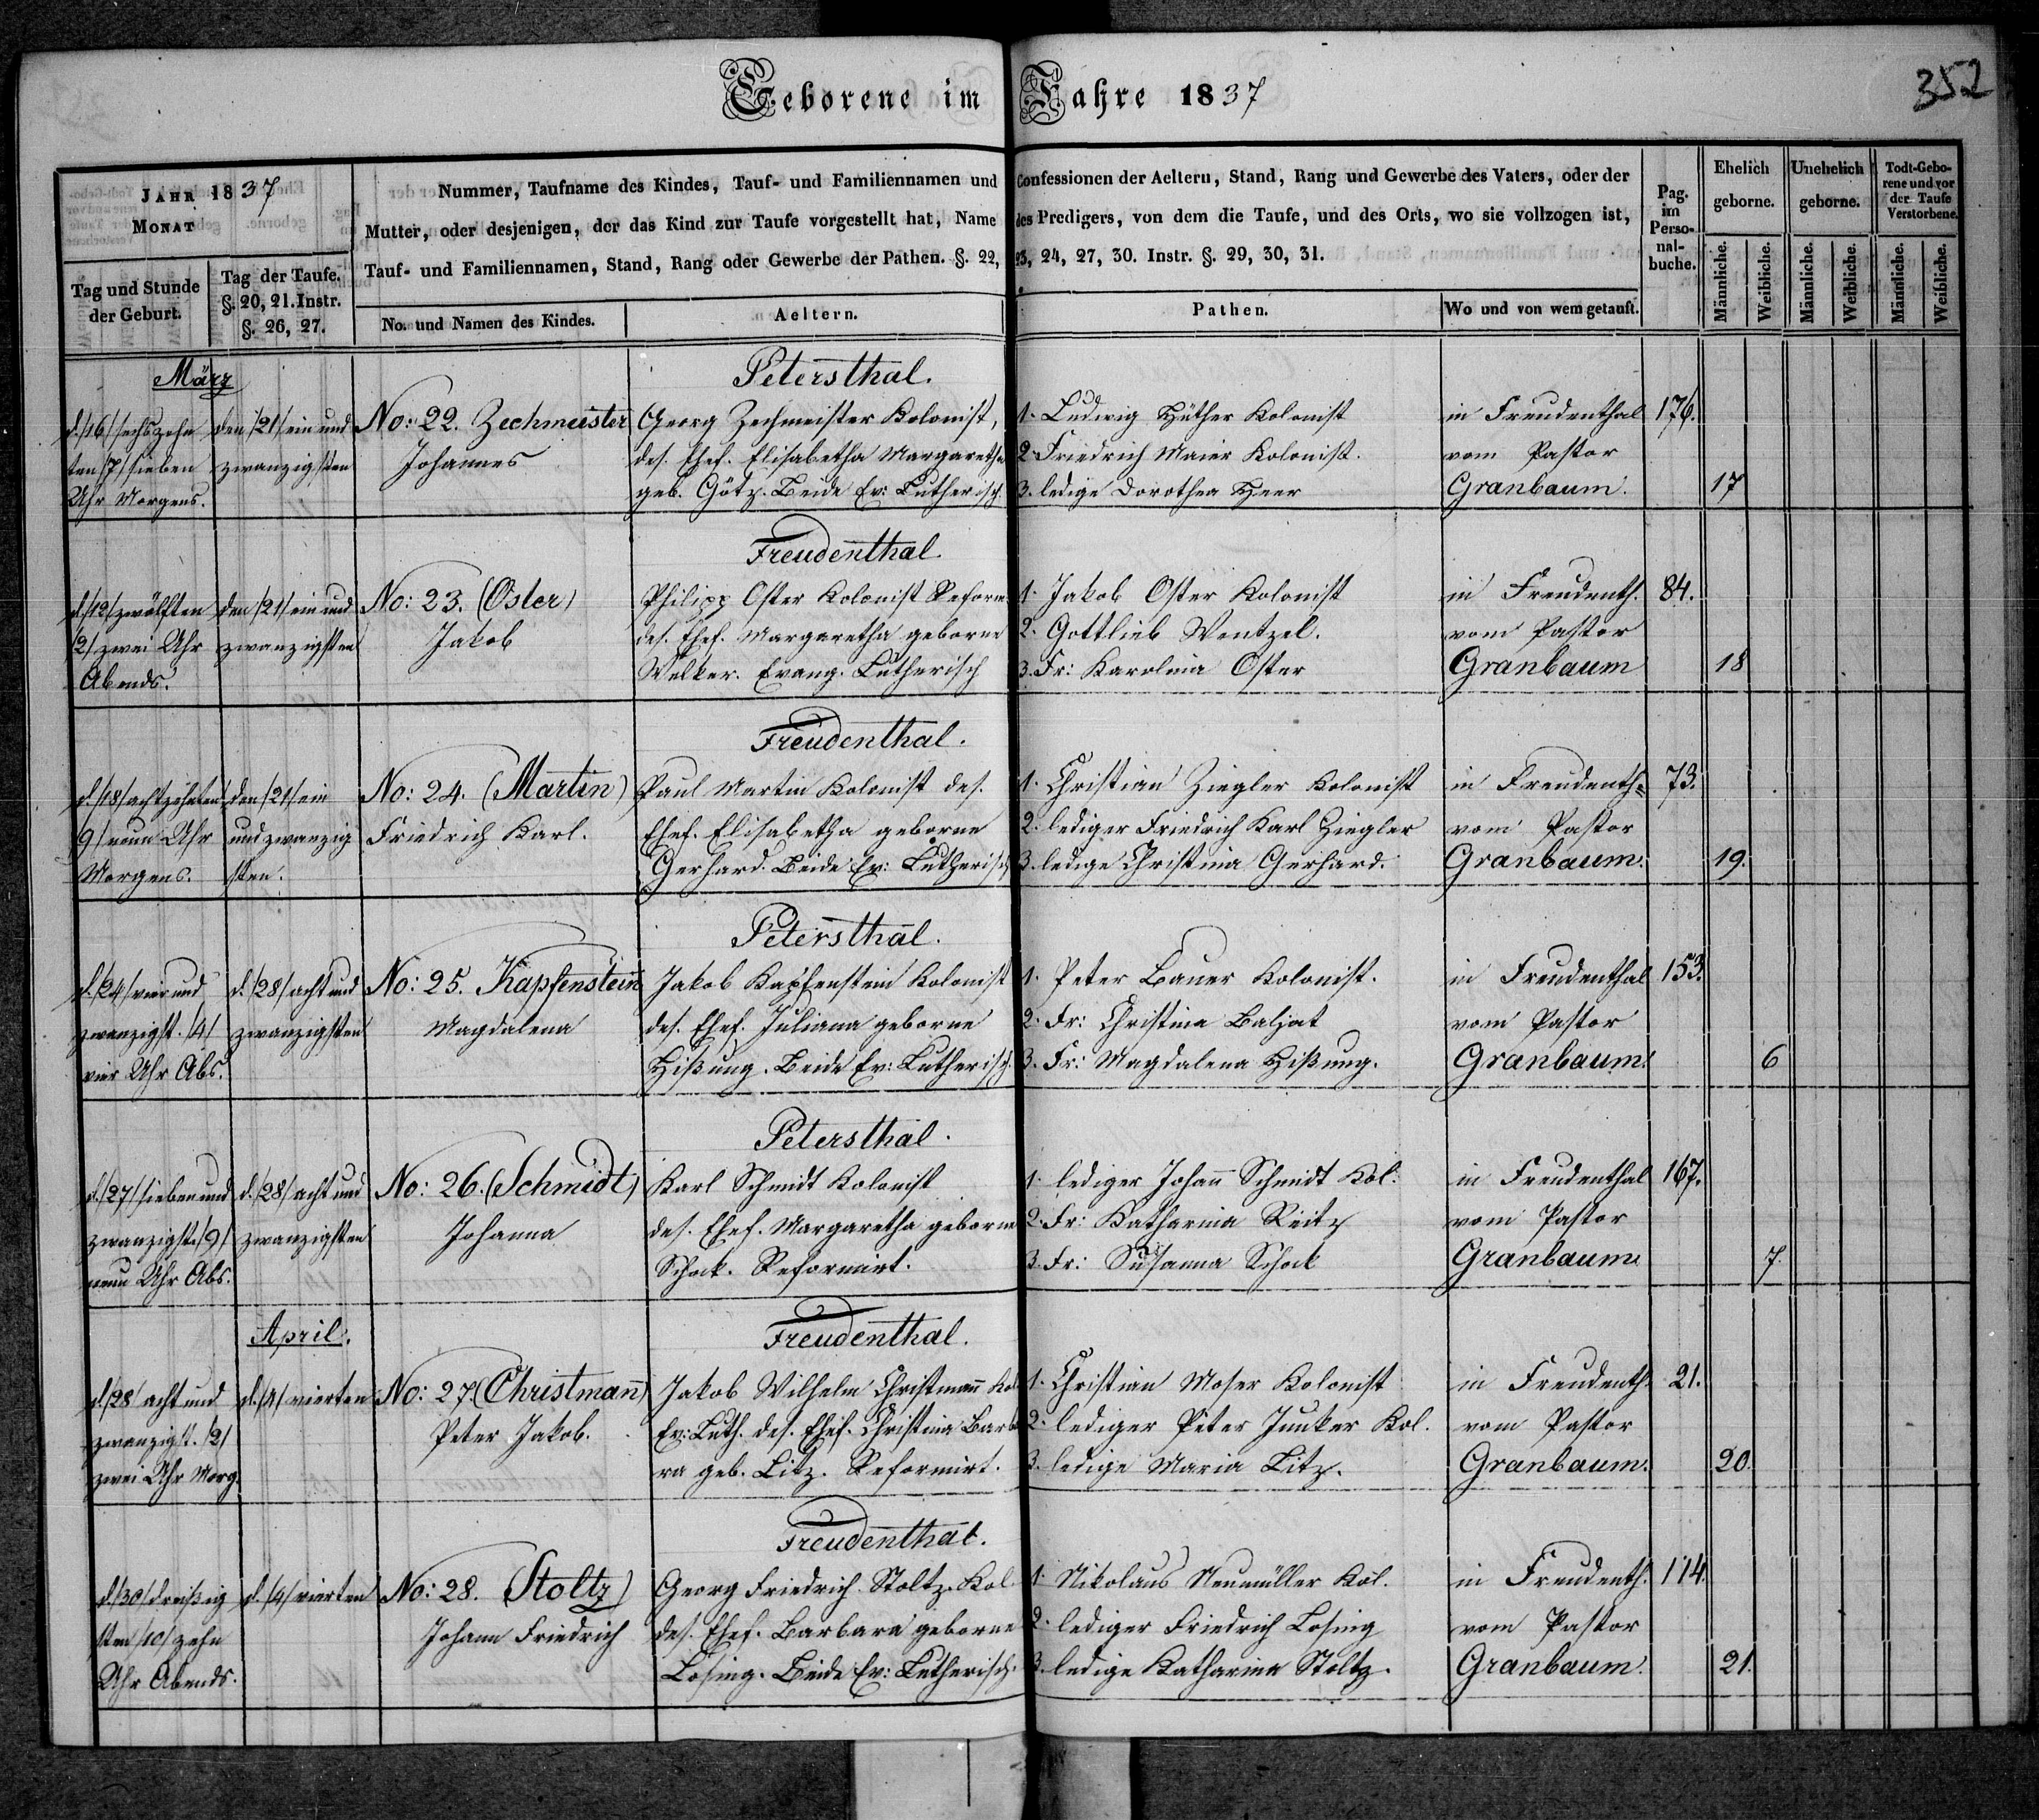 Geborene im Jahre 1837
352
JAHR 1837
MONAT
Tag und Stunde der Geburt.
Tag der Taufe. §. 20, 21. Instr. §. 26, 27.
Nummer, Taufname des Kindes, Tauf- und Familiennamen und Confessionen der Aeltern, Stand, Rang und Gewerbe des Vaters, oder der
Mutter, oder desjenigen, der das Kind zur Taufe vorgestellt hat, Name des Predigers, von dem die Taufe, und des Orts, wo sie vollzogen ist,
Tauf- und Familiennamen, Stand, Rang oder Gewerbe der Pathen. §. 22, 23, 24, 27, 30. Instr. §. 29, 30, 31.
No. und Namen des Kindes.
Aeltern.
Pathen.
Wo und von wem getauft.
Pag. im Perso-nal-buche.
Ehelich geborne.
Unehelich geborne.
Todt-Gebo-rene und vor der Taufe Verstorbene.
Männliche. Weibliche. Männliche. Weibliche. Männliche. Weibliche.
März
Petersthal.
d. /16/ sechszehn den /21/ ein und No: 22. Zechmeister Georg Zechmeister Kolonist, 1. Ludwig Hüther Kolonist in Freudenthal 176.
ten /7/ sieben zwanzigsten Johannes des. Ehef. Elisabetha Margaretha 2. Friedrich Maier Kolonist. vom Pastor
Uhr Morgens. geb. Götz. Beide Ev: Lutherisch. 3. ledige Dorothea Heer Granbaum. 17
Freudenthal.
d. /12/ zwölften den /21/ ein und No: 23. (Oster) Philipp Oster Kolonist Reform. 1. Jakob Oster Kolonist in Freudenth. 84.
/2/ zwei Uhr zwanzigsten Jakob des. Ehef. Margaretha geborne 2. Gottlieb Wentzel. vom Pastor
Abends. Welker. Evang. Lutherisch 3. Fr: Karolina Oster Granbaum 18
Freudenthal.
d. /18/ achtzehnten den /21/ ein No: 24. (Martin) Paul Martin Kolonist des. 1. Christian Ziegler Kolonist in Freudenth= 73.
9/ neun Uhr und zwanzig Friedrich Karl. Ehef. Elisabetha geborne 2. lediger Friedrich Karl Ziegler vom Pastor
Morgens. sten. Gerhard. Beide Ev: Lutherisch 3. ledige Christina Gerhard. Granbaum. 19.
Petersthal.
d. /24/ vier und d. /28/ acht und No: 25. Kapfenstein Jakob Kapfenstein Kolonist 1. Peter Bauer Kolonist. in Freudenthal 153.
zwanzigst. /4/ zwanzigsten Magdalena des. Ehef. Juliana geborne 2. Fr: Christina Baljat vom Pastor
vier Uhr Abs. Hißung. Beide Ev: Lutherisch. 3. Fr: Magdalena Hißung. Granbaum. 6
Petersthal.
d. /27/ sieben und d. /28/ acht und No: 26. (Schmidt) Karl Schmidt Kolonist 1. lediger Johann Schmidt Kol. in Freudenthal 167.
zwanzigst. /9/ zwanzigsten Johanna des. Ehef. Margaretha geborne 2. Fr: Katharina Reitz vom Pastor
neun Uhr Abs. Schock. Reformirt. 3. Fr: Susanna Schock Granbaum 7.
April.
Freudenthal.
d. /28/ acht und d. /4/ vierten No: 27 (Christmann) Jakob Wilhelm Christmann Kol 1. Christian Moser Kolonist in Freudenth. 21.
zwanzigst. /2/ Peter Jakob. Ev: Luth. des. Ehef. Christina Barba 2. lediger Peter Junker Kol. vom Pastor
zwei Uhr Morg. ra geb. Litz. Reformirt. 3. ledige Maria Litz. Granbaum. 20.
Freudenthal.
d. /30/ dreißig d. /4/ vierten No: 28. (Stoltz) Georg Friedrich Stoltz Kol. 1. Nikolaus Neumüller Kol. in Freudenth. 114.
sten /10/ zehn Johann Friedrich des. Ehef. Barbara geborne 2. lediger Friedrich Losing vom Pastor
Uhr Abends. Losing. Beide Ev: Lutherisch. 3. ledige Katharina Stoltz. Granbaum. 21.